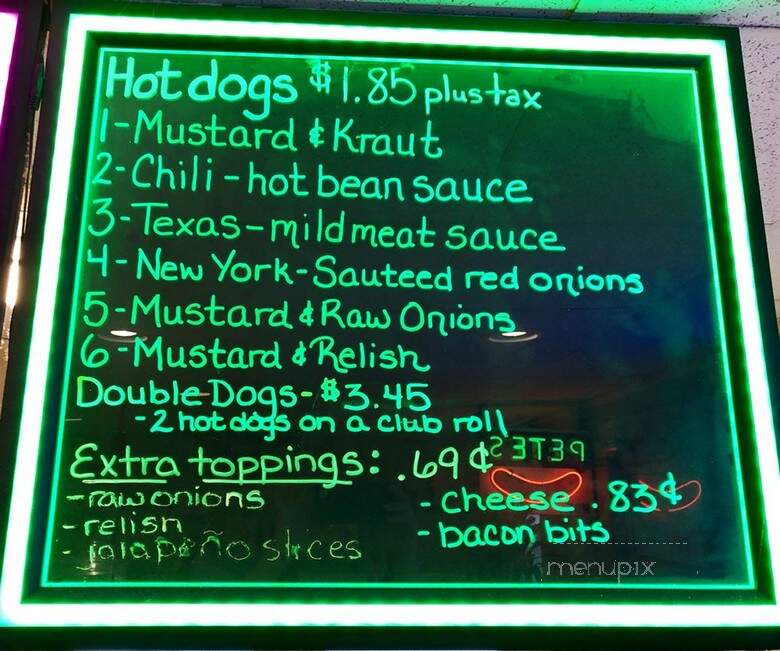 Hotdogs $1.85 plus tax
1-Mustard & Kraut
2-Chili-hot bean sauce
3-Texas-mild meat sauce
4-New York-Sauteed red onions
5-Mustard & Raw Onions
6-Mustard & Relish
Double Dogs-$3.45
-2 hot dogs on a club roll
PETE'S
Extra toppings: .69¢
-raw onions
-relish
-jalapeño slices
-cheese .83¢
-bacon bits
menupix